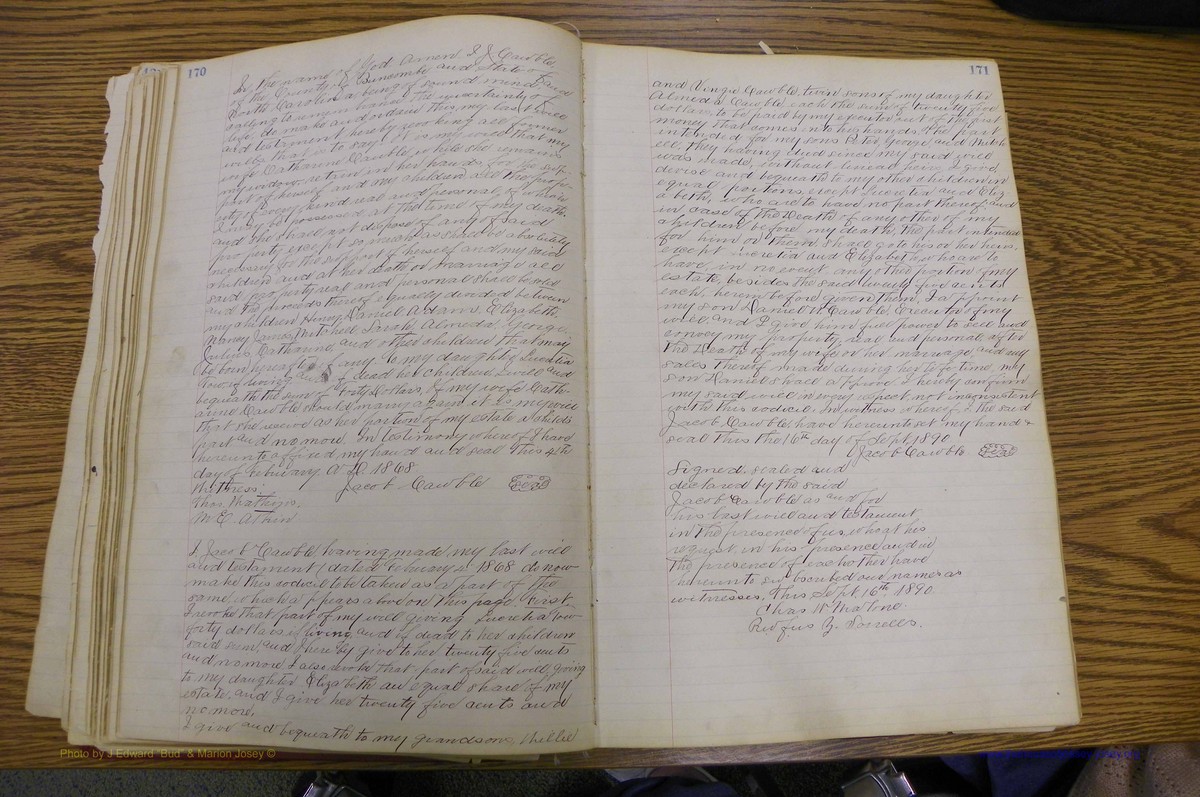 170
In the name of God Amen I J Cauble
of the County of Buncombe and State of
North Carolina being of sound mind and
calling to remembrance the uncertainty of
life do make and ordain this, my last will
and testament hereby revoking all former
wills that is to say, it is my will that my
wife Catharine Cauble while she remains
my widow retain in her hands for the sup-
port of herself and my children all the prop-
erty of every kind real and personal, of which
I may be possessed at the time of my death.
and she shall not dispose of any of said
property except so much as shall be absolutely
necessary for the support of herself and my said
children and at her death or marriage all
said property real and personal shall be sold
and the proceeds thereof equally divided between
my children Henry, Daniel Adam, Elizabeth,
Nancy James Mitchell Sarah, Almeda, George,
Julius Catharine, and other children that may
be born hereafter if any. to my daughter Lucretia
Low if living and if dead her children I will and
bequeath the sum of Forty Dollars, If my wife Cath-
arine Cauble should marry again it is my will
that she receive as her portion of my estate a childs
part and no more. In testimony whereof I have
hereunto affixed my hand and seal this 4th
day of February A.D. 1868
Witness: Jacob Cauble Seal
Thos. Watkins,
M. E. Atkin
I, Jacob Cauble having made my last will
and testament dated February 4 1868 do now
make this codicil to be taken as a part of the
same, which appears above on this page. First,
I revoke that part of my will giving Lucretia Low
forty dollars if living, and if dead to her children
said sum, and hereby give to her twenty five cents
and no more. I also revoke that part of said will, giving
to my daughter Elizabeth an equal share of my
estate, and I give her twenty five cents and
no more.
I give and bequeath to my grandsons, Willie
Photo by J Edward "Bud" & Marion Josey ©
171
and Cauble, twin sons of my daughter
Almeda Cauble, each the sum of twenty five
dollars, to be paid by my executor out of the first
money that comes into his hands. The part
intended for my sons Peter, George, and Mitch-
ell, they having died since my said will
was made, without lineal heirs, I give
devise and bequeath to my other children in
equal portions, except Lucretia and Eliz-
abeth, who are to have no part thereof, and
in case of the Death of any other of my
children before my death, the part intended
for him or them shall go to his or her heirs,
except Lucretia and Elizabeth, who are to
have, in no event, any other portion of my
estate, besides the said twenty five cents
each, herein before given them, I appoint
my son Daniel W. Cauble, Executor of my
will, and I give him full power to sell and
convey my property, real and personal after
the Death of my wife or her marriage, and any
sales thereof made during her life time, my
son Daniel shall approve. I hereby confirm
my said will in every respect, not inconsistent
with this codicil. In witness whereof I the said
Jacob Cauble have hereunto set my hand &
seal this the 16th day of Sept. 1890
Jacob Cauble Seal
Signed, sealed and
declared by the said
Jacob Cauble as and for
his last will and testament
in the presence of us who at his
request, in his presence and in
the presence of each other have
hereunto subscribed our names as
witnesses, this Sept. 16th 1890
Chas. W Malone
Rufus Y. Sorrells.